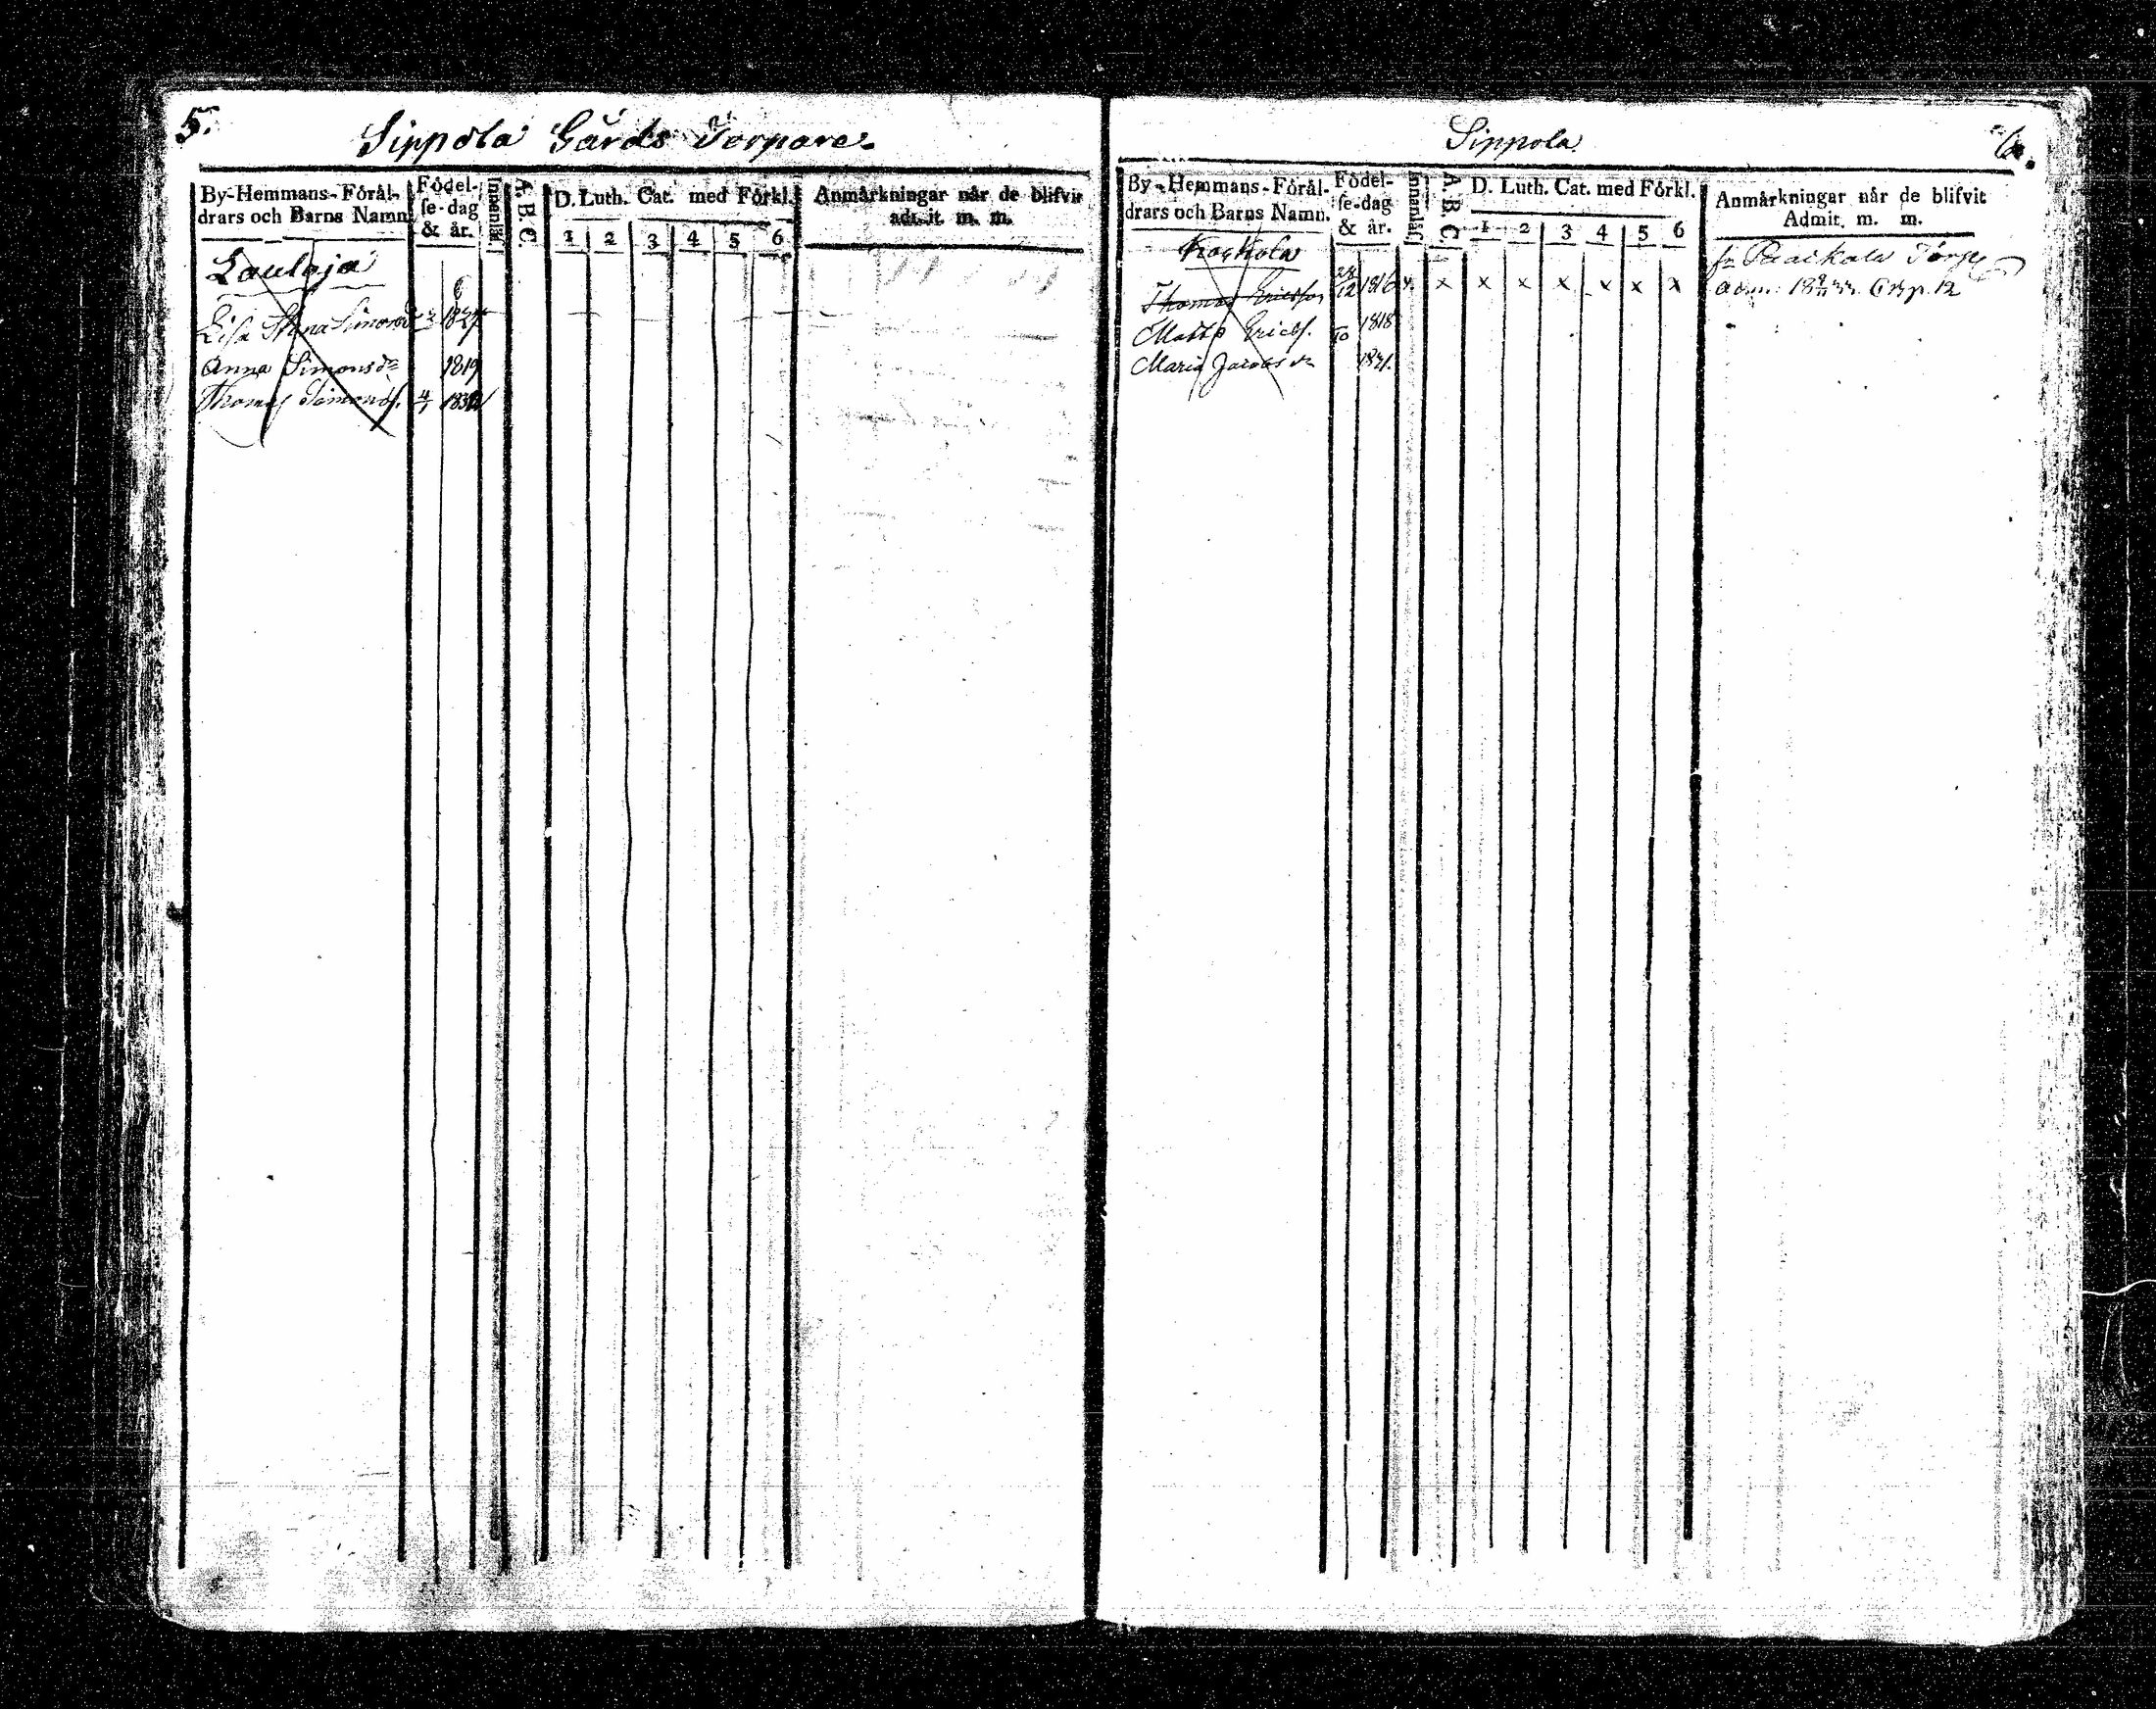 5.
Sippola Gårds Torpare
By-Hemmans-Föräl-
drars och Barns Namn.
Födel-
se-dag
& år.
Innanläs.
A. B. C.
D. Luth. Cat. med Förkl.
1 2 3 4 5 6
Anmärkningar när de blifvit
admit. m. m.
Laulaja
Lisa Stina Simonsd 1827
Anna Simonsdr 1819
Thomas Simonss. 4/1
Sippola
6.
By-Hemmans-Föräl-
drars och Barns Namn.
Födel-
se-dag
& år.
Innanläs.
A. B. C.
D. Luth. Cat. med Förkl.
1 2 3 4 5 6
Anmärkningar när de blifvit
Admit. m. m.
fr
Thomas Ericsson /12 1816 x x x x x x x Adm: p. 12
Matts Erics. 10 1818
Maria Jacobsdr 1821.